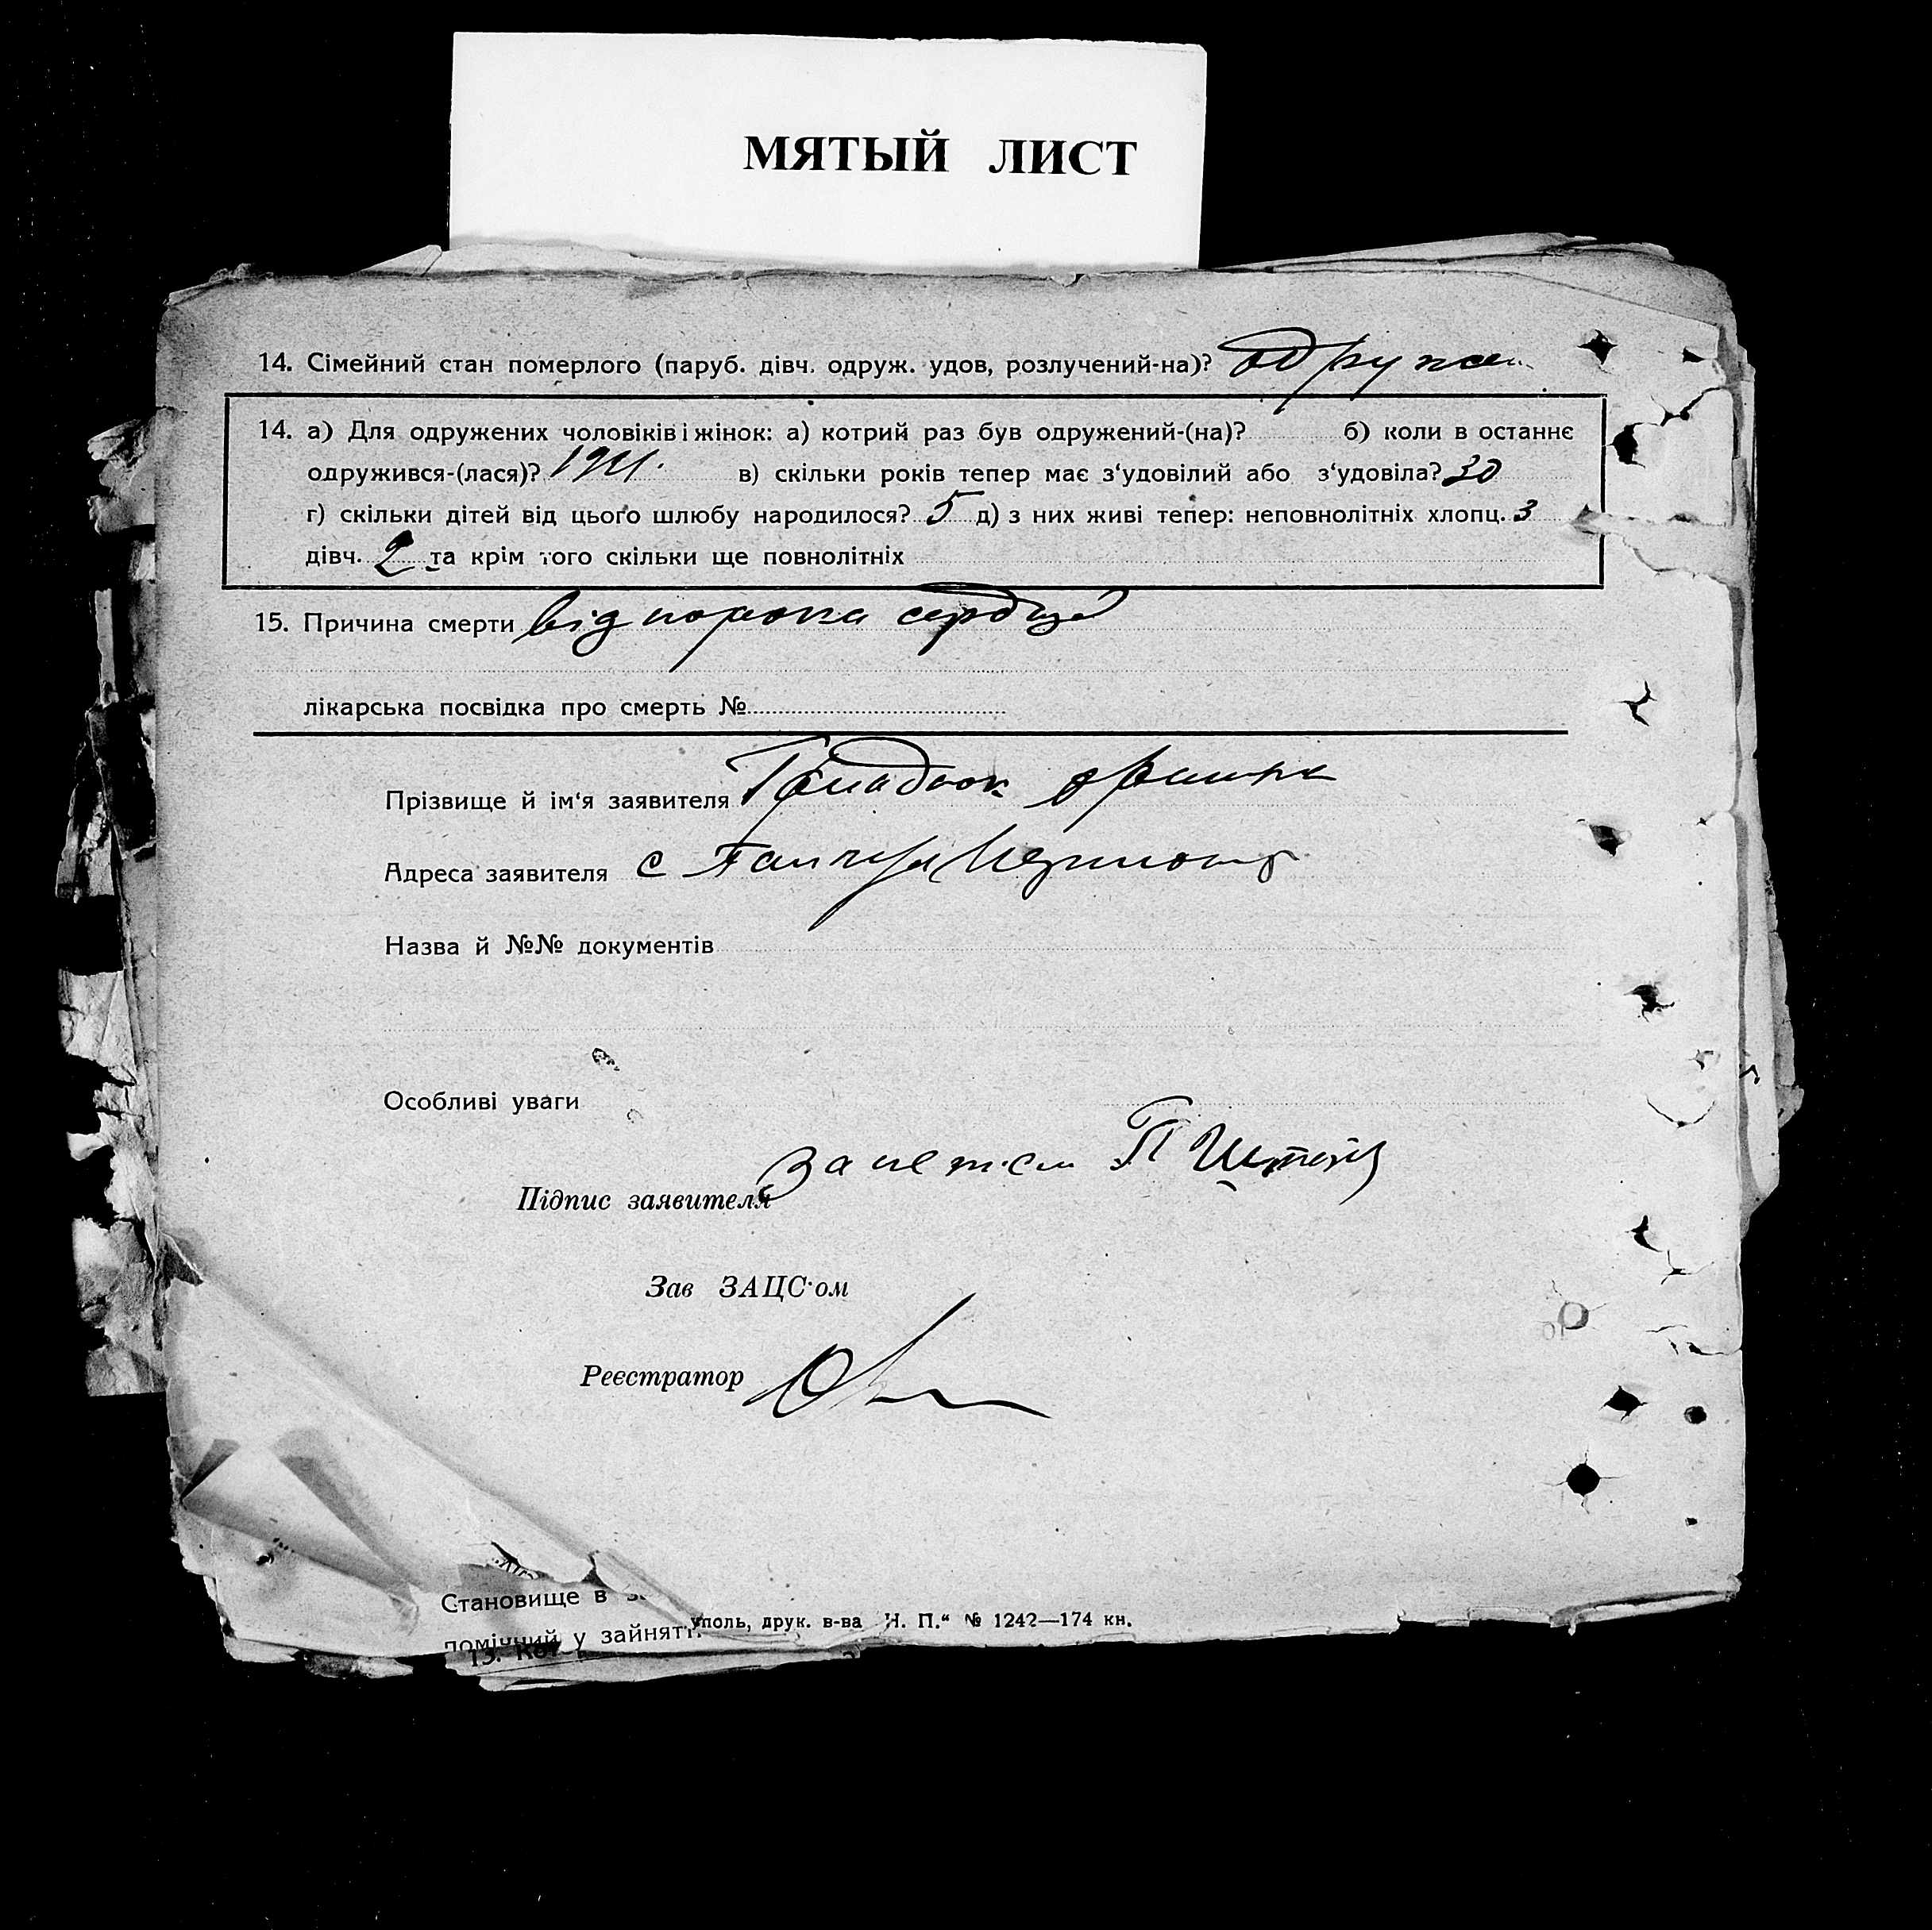 МЯТЫЙ ЛИСТ
14. Сімейний стан померлого (паруб. дівч. одруж. удов, розлучений-на)? одружен.
14. а) Для одружених чоловіків і жінок: а) котрий раз був одружений-(на)? б) коли в останнє
одружився-(лася)? в) скільки років тепер має з‘удовілий або з‘удовіла? 30
г) скільки дітей від цього шлюбу народилося? 5 д) з них живі тепер: неповнолітніх хлопц. 3
дівч. 2 та крім того скільки ще повнолітніх
15. Причина смерти від порока сердця
лікарська посвідка про смерть №
Прізвище й ім‘я заявителя
Адреса заявителя с
Назва й №№ документів
Особливі уваги
Підпис заявителя
Зав ЗАЦС‘ом
Реєстратор
Становище в
уполь, друк. в-ва Н. П.“ № 1242—174 кн.
помічний у зайнятт.